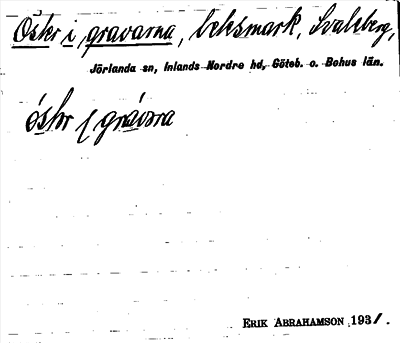 Öster i gravarna, beksmark, Svalsberg,
Jörlanda sn, Inlands Nordre hd, Göteb. o. Bohus län.
ERIK ABRAHAMSON 1931.